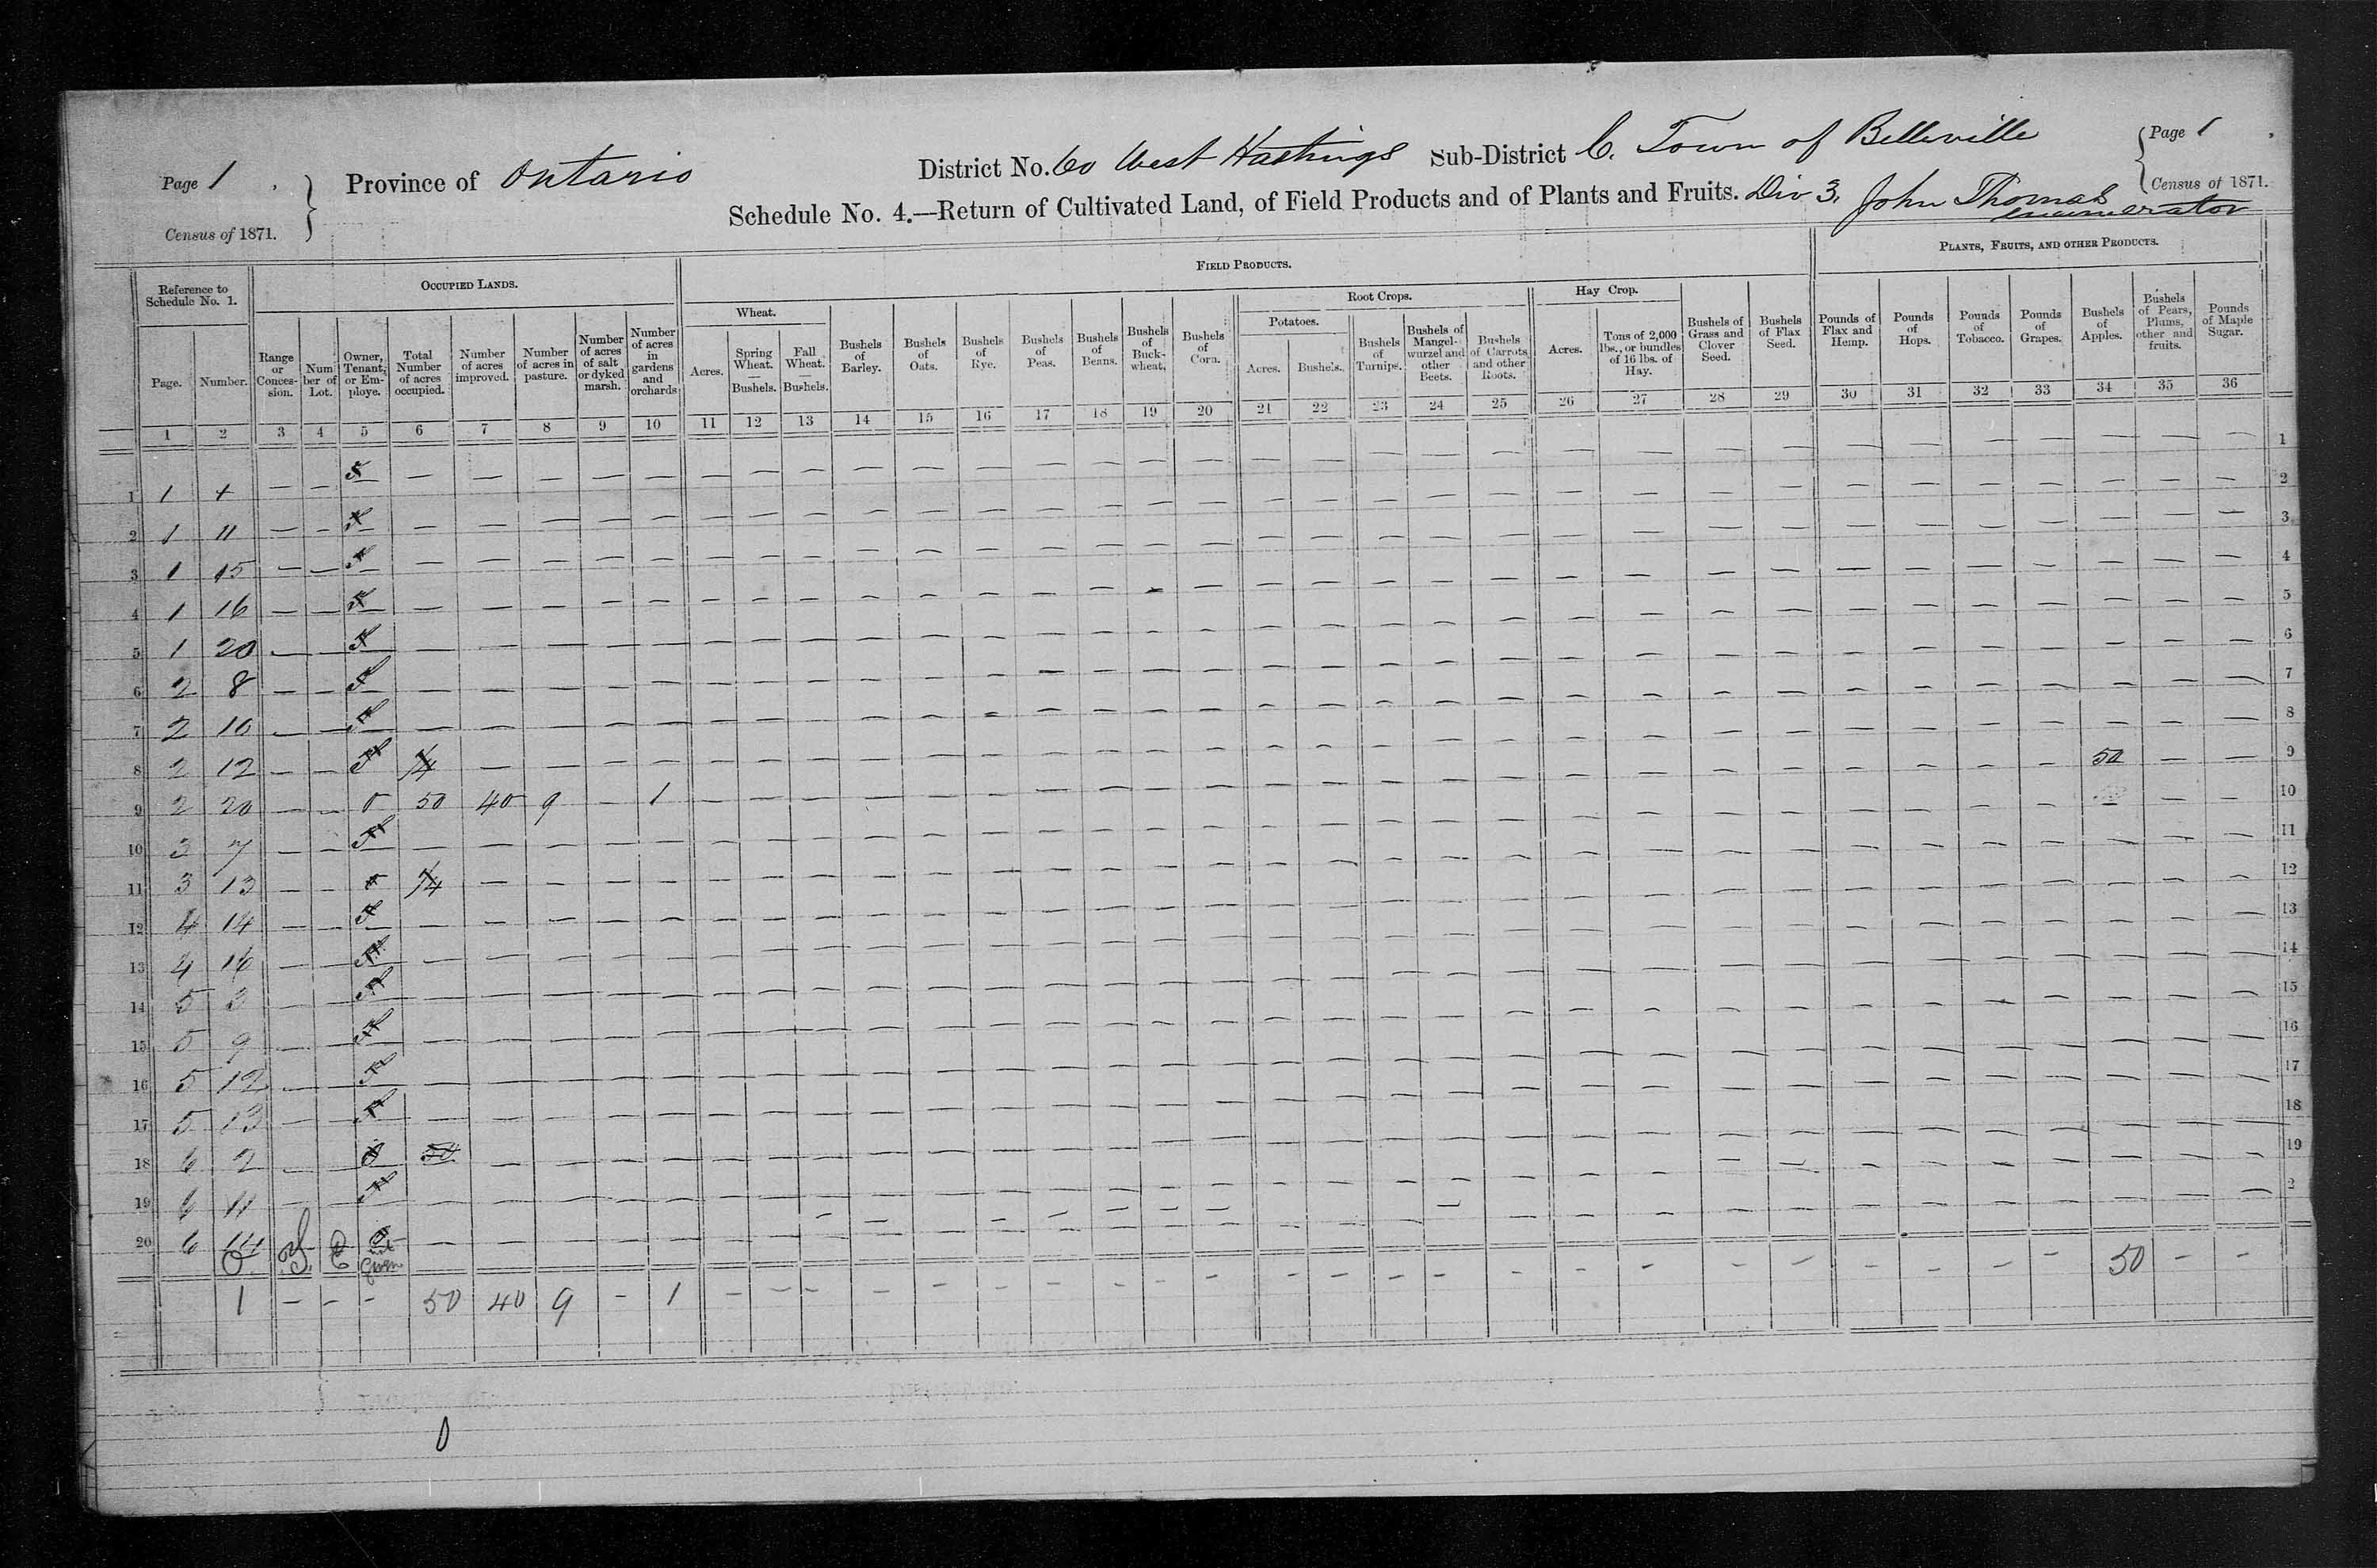 Page 1
Census of 1871.
Province of Ontario
District No. 60 West Hastings Sub-District C. Town of Belleville
Page 1
Census of 1871.
Schedule No. 4.—Return of Cultivated Land, of Field Products and of Plants and Fruits. Div 3, John Thomas
enumerator
Reference to Schedule No. 1.
OCCUPIED LANDS.
FIELD PRODUCTS.
PLANTS, FRUITS, AND OTHER PRODUCTS.
Wheat.
Root Crops.
Potatoes.
Hay Crop.
Page.
Number.
Range or Conces-sion.
Num ber of Lot.
Owner, Tenant, or Em-ploye.
Total Number of acres occupied.
Number of acres improved.
Number of acres in pasture.
Number of acres of salt or dyked marsh.
Number of acres in gardens and orchards
Acres.
Spring Wheat. — Bushels.
Fall Wheat. — Bushels.
Bushels of Barley.
Bushels of Oats.
Bushels of Rye.
Bushels of Peas.
Bushels of Beans.
Bushels of Buck-wheat.
Bushels of Corn.
Acres.
Bushels.
Bushels of Turnips.
Bushels of Mangel-wurzel and other Beets.
Bushels of Carrots and other Roots.
Acres.
Tons of 2,000 lbs., or bundles of 16 lbs. of Hay.
Bushels of Grass and Clover Seed.
Bushels of Flax Seed.
Pounds of Flax and Hemp.
Pounds of Hops.
Pounds of Tobacco.
Pounds of Grapes.
Bushels of Apples.
Bushels of Pears, Plums, other and fruits.
Pounds of Maple Sugar.
1 2 3 4 5 6 7 8 9 10 11 12 13 14 15 16 17 18 19 20 21 22 23 24 25 26 27 28 29 30 31 32 33 34 35 36
1 1 4 — — T — 1
2 1 11 — — T — 2
3 1 15 — — T — 3
4 1 16 — — T — 4
5 1 20 — — T — 5
6 2 8 — — T — 6
7 2 10 — — T — 7
8 2 12 — — T 1/4 — 8
9 2 20 — — O 50 40 9 — 1 — 50 — — 9
10 3 7 — — T — 10
11 3 13 — — O 1/4 — 11
12 4 14 — — T — 12
13 4 16 — T — 13
14 5 3 — T — 14
15 5 9 — T — 15
16 5 12 — T — 16
17 5 13 — T — 17
18 6 2 — O — 18
19 6 11 — T — 19
20 6 14 — 2
O T E not Given
1 — — — 50 40 9 — 1 — 50 — —
0